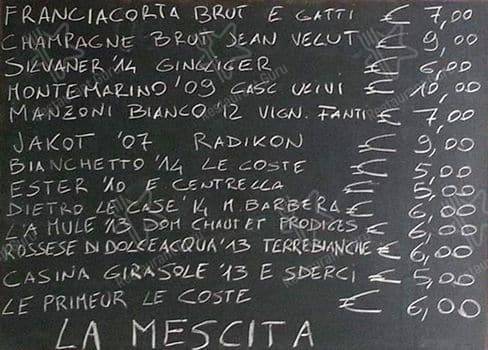 FRANCIACORTA BRUT E GATTI € 7,00
CHAMPAGNE BRUT JEAN VELUT € 9,00
SILVANER '14 GINGLIGER € 6,00
MONTEMARINO '09 CASC ULIVI € 10,00
MANZONI BIANCO 12 VIGN. FANTI € 7,00
JAKOT '07 RADIKON € 9,00
BIANCHETTO '14 LE COSTE € 5,00
ESTER '10 E CENTRELLA € 5,00
DIETRO LE CASE '14 M. BARBERA € 6,00
LA MULE '13 DOM CHAUT ET PRODIGES € 6,00
ROSSESE DI DOLCEACQUA '13 TERREBIANCHE € 6,00
CASINA GIRASOLE '13 E SDERCI € 5,00
LE PRIMEUR LE COSTE € 6,00
LA MESCITA